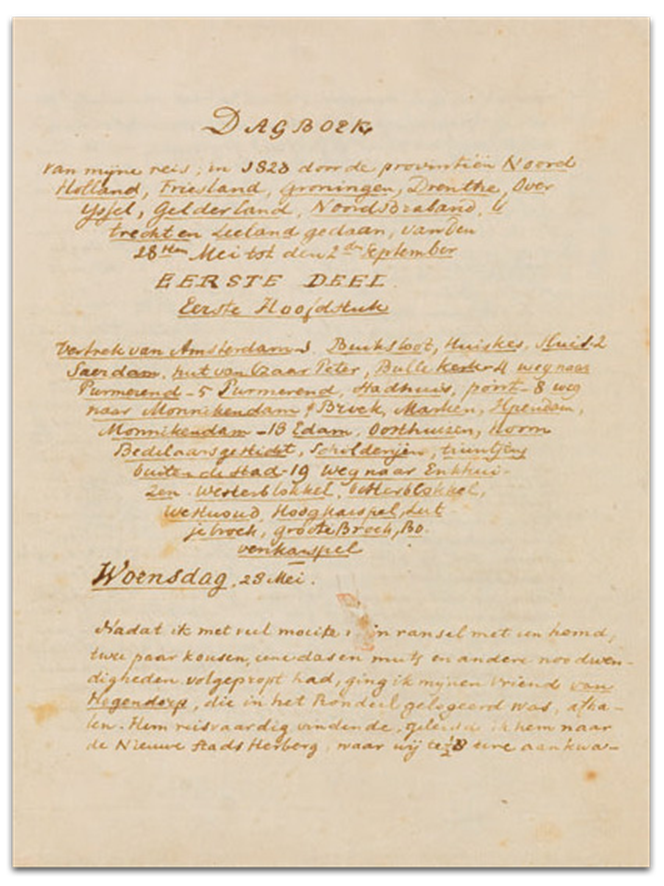 DAGBOEK
van mijne reis, in 1823 door de provintiën Noord
Holland, Friesland, Groningen, Drenthe, Over
Yssel, Gelderland, Noord Braband, U
trecht en Zeeland gedaan, van den
28sten Mei tot den 2den September
EERSTE DEEL.
Eerste Hoofdstuk
Vertrek van Amsterdam 1. Buiksloot, Huiskes, 2
Saerdam, hut van Czaar Peter, Bulle Kerk 4 weg naar
Purmerend - 5 Purmerend, Stadhuis, port - 8 weg
naar Monnikendam Broek, Marken, Ilpendam,
Monnikendam - 18 Edam, Oosthuizen, Hoorn
Bedelaarsgesticht, Schilderijen, tuintjen
buiten de Stad - 19 weg naar Enkhui-
zen. Westerblokkel, Oosterblokkel,
Westwoud, Hoogkarspel, Lut
jebroek, groote Broek, Bo
venkarspel
Woensdag, 28 Mei.
Nadat ik met veel moeite mijn ransel met een hemd,
twee paar kousen, eene das en muts en andere noodwen-
digheden volgepropt had, ging ik mijnen vriend van
Hogendorp, die in het Rondeel gelogeerd was, afha-
len. Hem reisvaardig vindende, geleidde ik hem naar
de Nieuwe Stads Herberg, waar wij te ½8 ure aankwa-